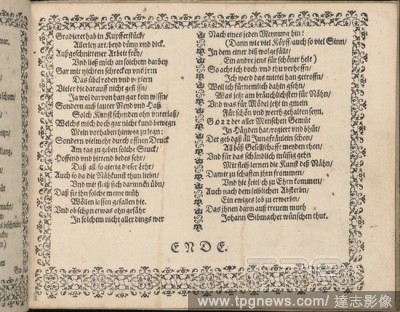 Gradieret hab in Kupfferstück/
Allerley art/ beyd dünn vnd dick.
Auß geschnittener Arbeit frey/
Vnd ließ mich an solchem darbey
Gar wol
Das
Vieler die darauff nicht
Ja wol darvon han gar kein wissn/
Sondern auß lauter Neyd vnd Haß
Solch Kunst schenden ohn vnterlaß/
Welchs mich doch gar nicht kand bewegn
Mein vorhaben hinweg zu legn:
Sondern vielmehr durch offnen Druck
Am tag zu geben solche Stuck/
Hoffend vnd bittend beydes sehr/
Daß all so gerne diese Lehr/
Auch so da die Nähkunst than liebn/
Vnd mit fleiß sich darinnen übn/
Daß sie ihn solche meine müh
Wöllen lassen gefallen hie.
Vnd ob schon etwas ohn gefähr
In solchem nicht aller dings wer
Nach eines jeden Meinung hin:
(Dann wie viel Köpff/ auch so viel Sinn/
In dem einer diß wolgefäll/
Ein andre jens für schöner helt)
So acht ich doch vnd thu verhoffn/
Ich werd das mittel han getroffn/
Weil ich fürnemlich dahin gsehn/
Was jetz am bräuchlichsten für Nähn/
Vnd was für Mödel jetzt in gmein
Für schön vnd werth gehalten seyn.
Gott der aller Menschen Gemüt
In Händen hat/ regiert vnd hüt/
Der geb daß all Jungfräulein schon/
All böß Gsellschafft meiden thon/
Vnd für das schändlich müssig gehn
Mit fleiß lernen die Kunst deß Nähn/
Damit zu schaffen ihrn frommen/
Vnd hie zeitl zu Ehrn kommen/
Auch nach dem leiblichen Absterbn/
Ein ewiges lob zu erwerbn/
Das ihnen dann auß treuem muth
Johann Sibmacher wünschen thut.
ENDE.
www.tpgnews.com / 達志影像